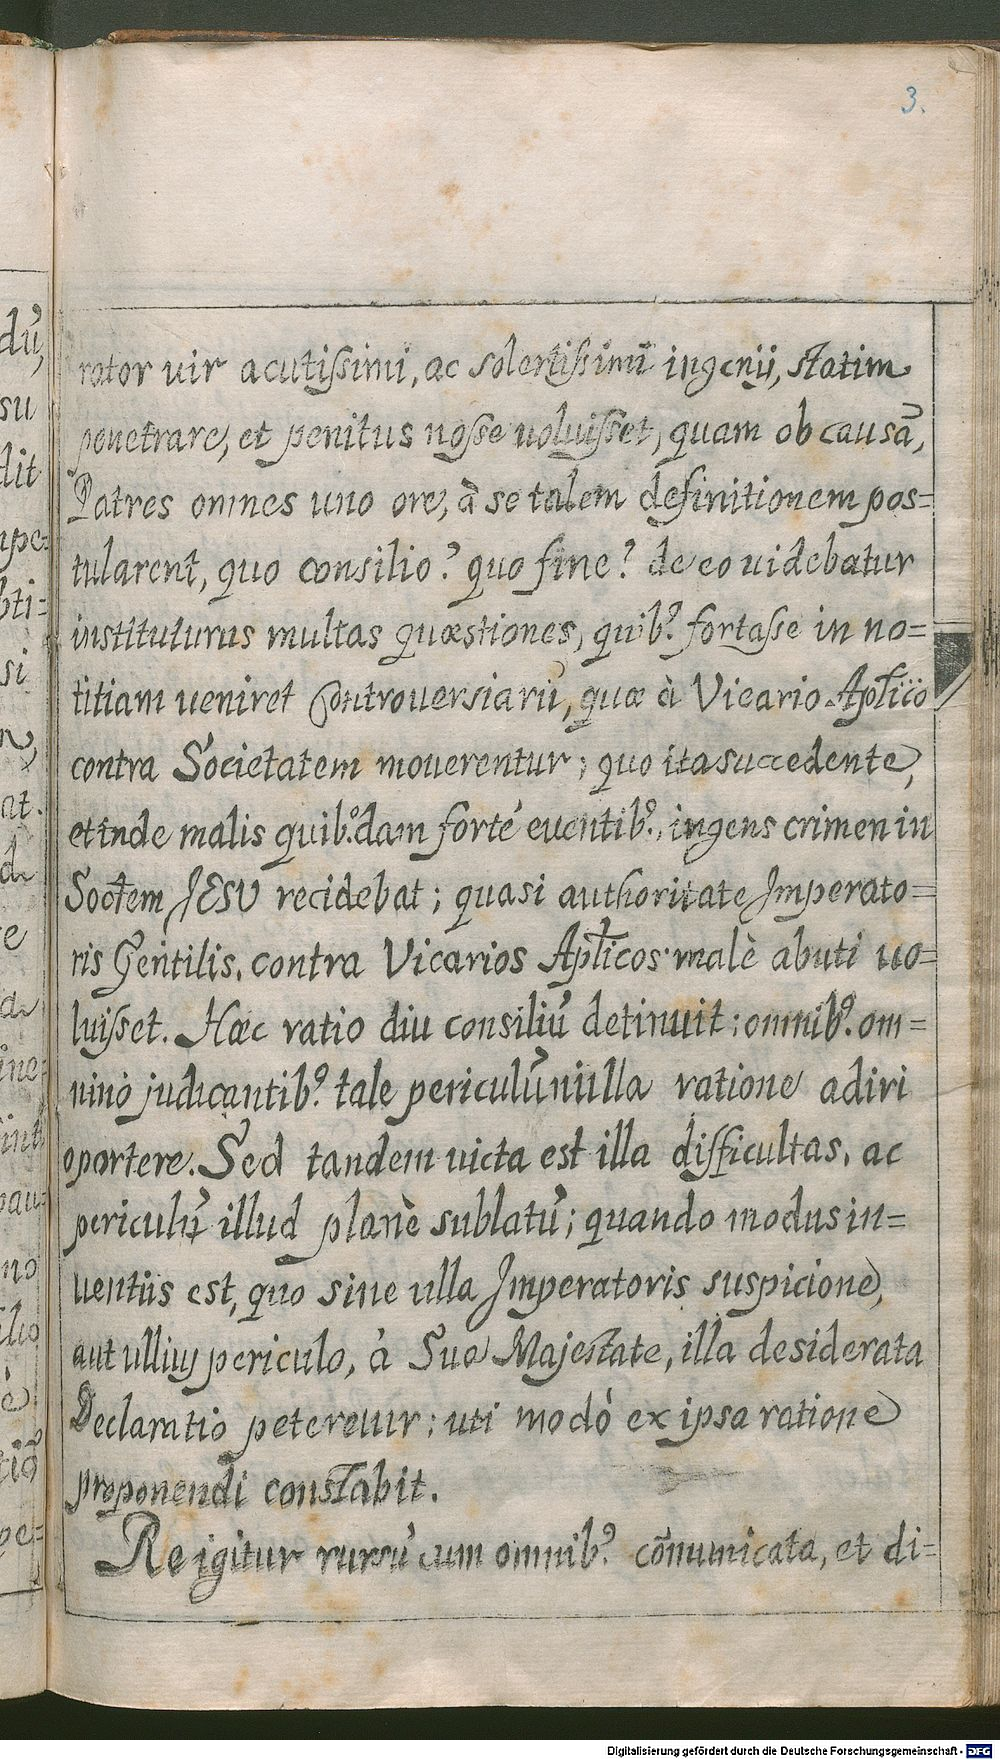 3.
rator uir acutissimi, ac solertissimi ingenii, statim
penetrare, et penitus nosse uoluisset, quam ob causã,
Patres omnes uno ore, à se talem definitionem pos=
tularent, quo consilio? quo fine? de eo uidebatur
instituturus multas quæstiones, quib⁹. fortasse in no=
titiam ueniret Controuersiarũ, quæ à Vicario Aplĩco
contra Societatem mouerentur; quo ita succedente,
et inde malis quib⁹dam forté euentib⁹., ingens crimen in
Soctẽm JESU recidebat; quasi authoritate Imperato=
ris Gentilis, contra Vicarios Aplĩcos malè abuti uo=
luisset. Hæc ratio diu consiliũ detinuit: omnib⁹. om=
ninò judicantib⁹. tale periculũ nulla ratione adiri
oportere. Sed tandem uicta est illa difficultas, ac
periculũ illud planè sublatũ; quando modus in=
uentus est, quo sine ulla Imperatoris suspicione,
aut ullius periculo, à Sua Majestate, illa desiderata
Declaratio peteretur: uti modó ex ipsa ratione
proponendi constabit.
Re igitur rursũ cum omnib⁹. cõmunicata, et di=
Digitalisierung gefördert durch die Deutsche Forschungsgemeinschaft - DFG